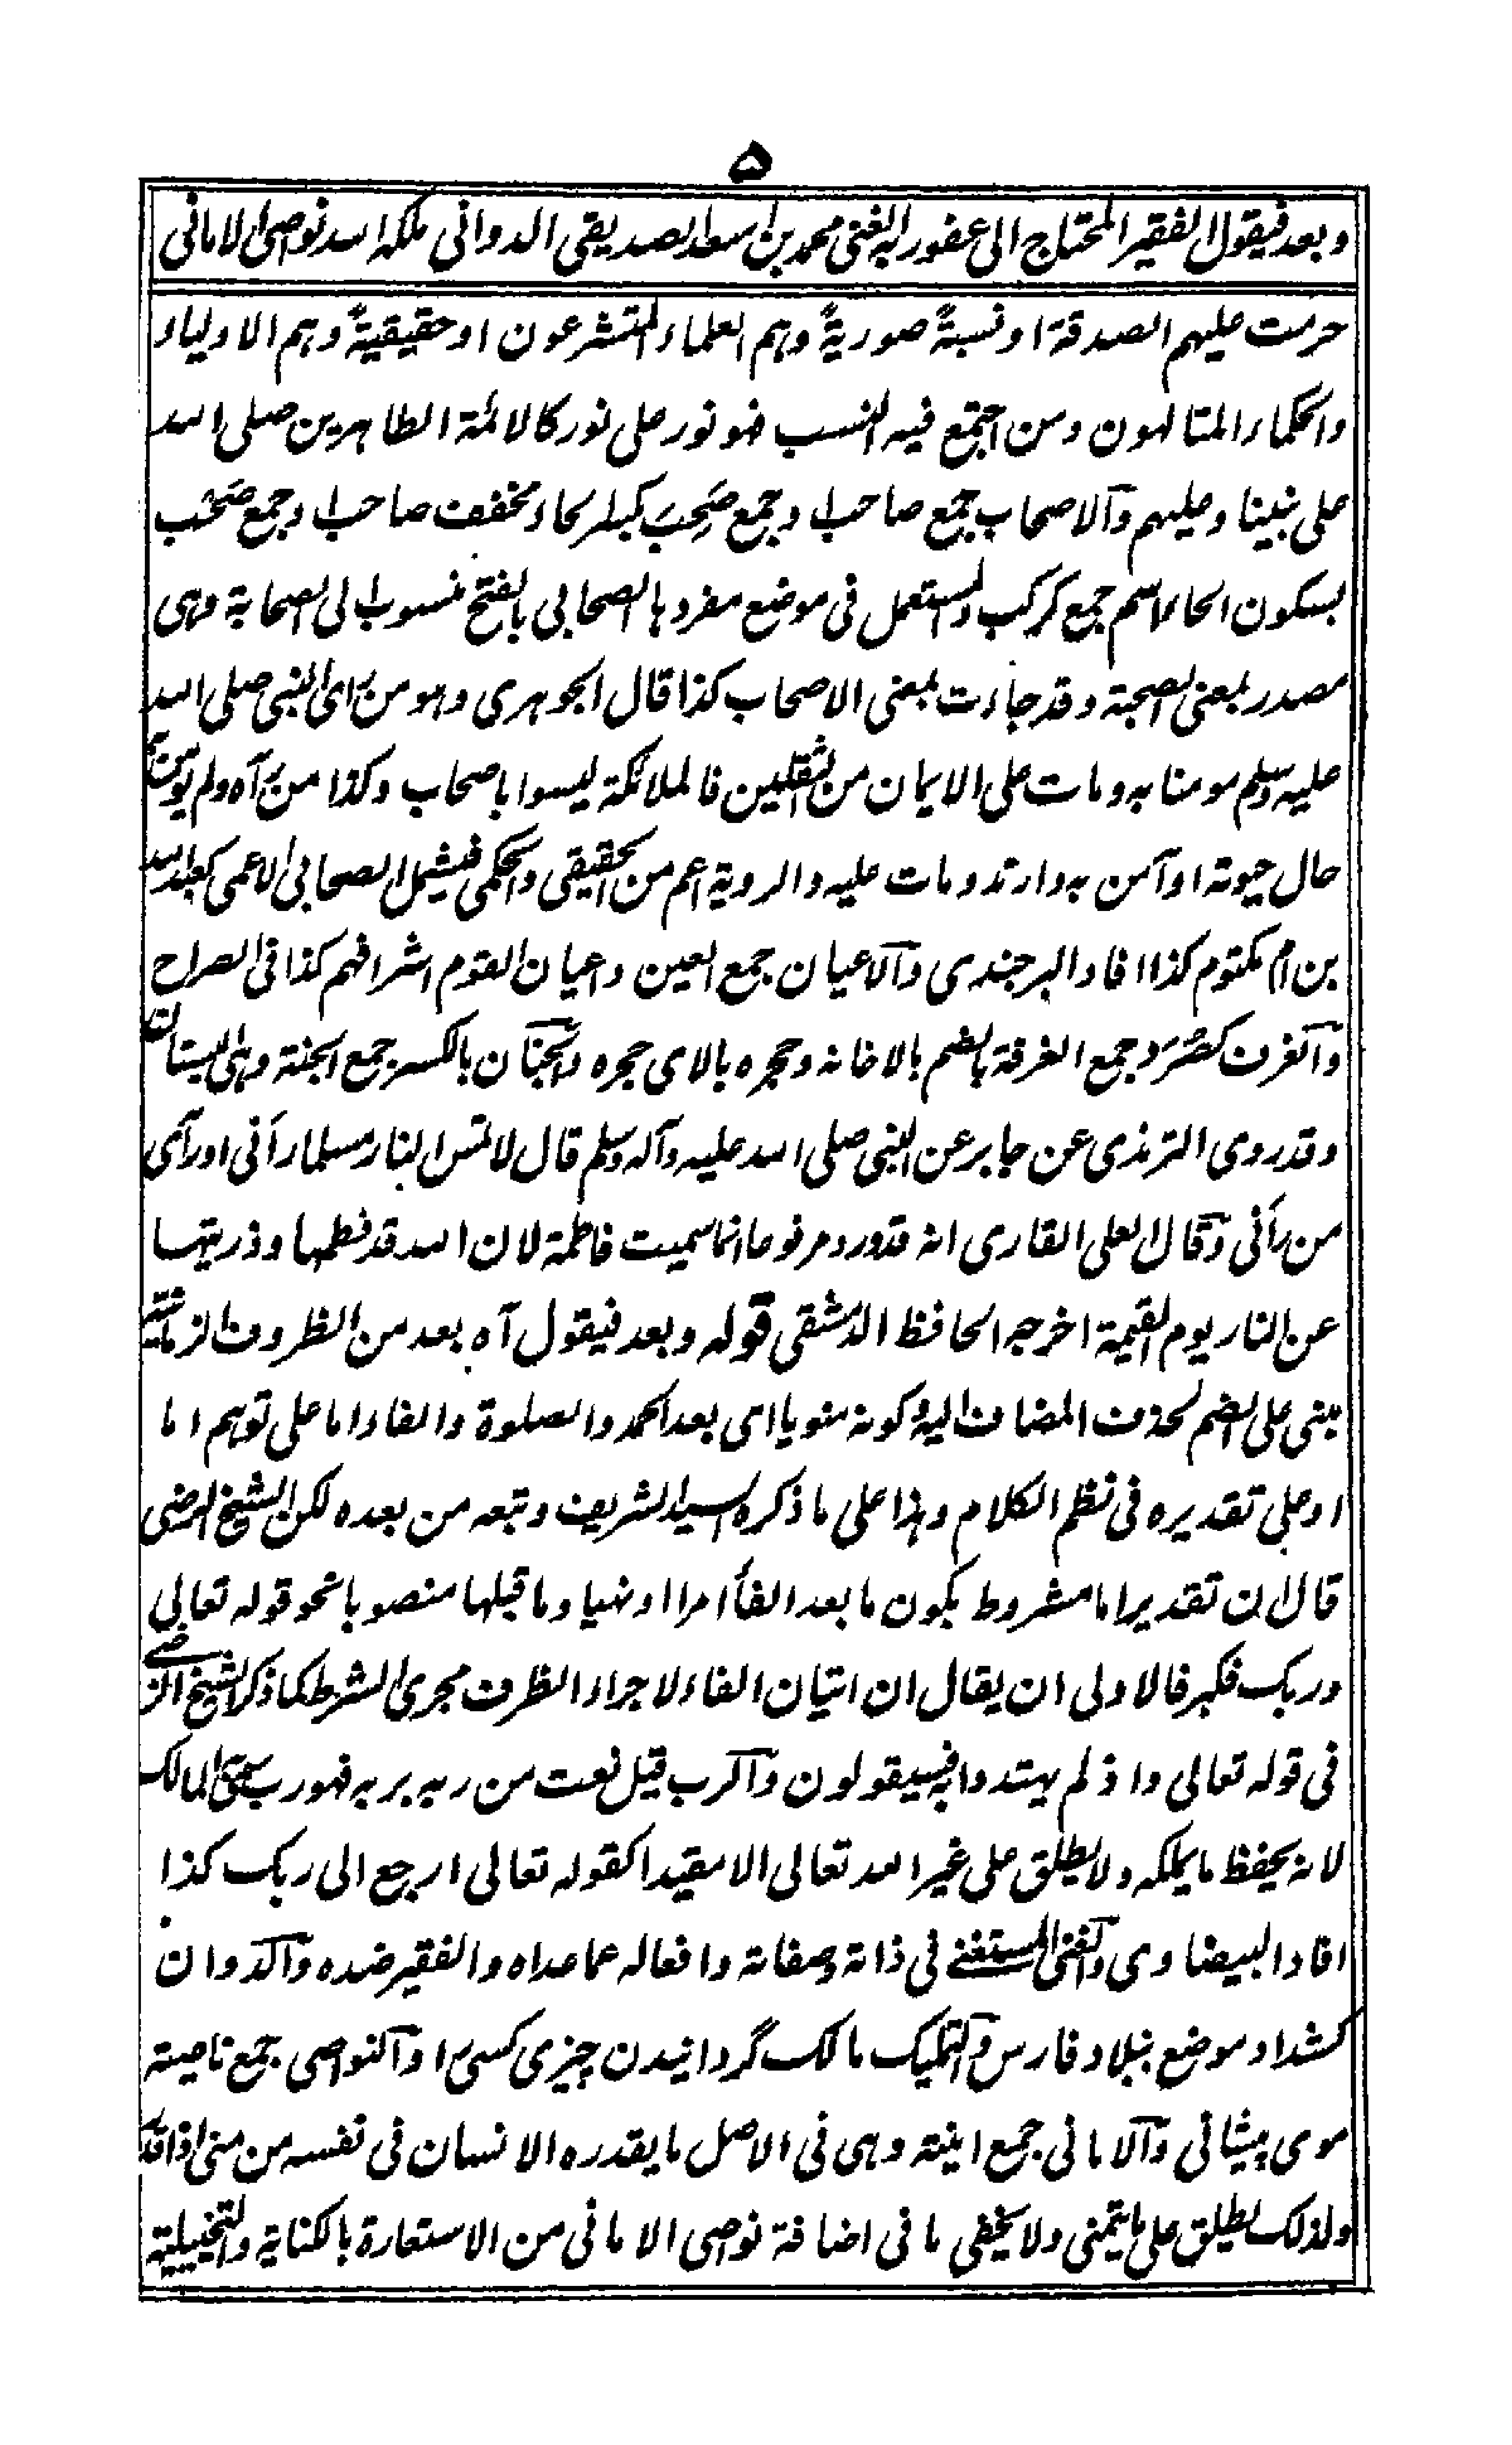 ۵
وبعد فيقول الفقير المحتاج الى عفو ربه الغنى محمد بن اسعد الصديقى الدوانى ملكه الله نواصى الامانى
حرمت عليهم الصدقة او نسبةً صوريةً وهم العلماء المتشرعون او حقيقيةً وهم الاولياء
والحكماء المتالهون ومن اجتمع فيه النسب فهو نور على نور كالائمة الطاهرين صلى الله
على نبينا وعليهم والاصحاب جمع صاحب او جمع صَحِب بكسر الحاء مخفف صاحب او جمع صَحْب
بسكون الحاء اسم جمع كركب والمستعمل فى موضع مفردها الصحابى بالفتح منسوب الى الصحابة وهى
مصدر بمعنى الصحبة وقد جاءت بمعنى الاصحاب كذا قال الجوهرى وهو من راى النبى صلى الله
عليه وسلم مومنا به ومات على الايمان من الثقلين فالملائكة ليسوا باصحاب وكذا من رآه ولم يؤمن
حال حيوته او آمن به وارتد ومات عليه والروية اعم من الحقيقى والحكمى فيشمل الصحابى الاعمى كعبد الله
بن ام مكتوم كذا افاد البرجندى والاعيان جمع العين واعيان القوم اشرافهم كذا فى الصراح
والغرف كصُرَد جمع الغرفة بالضم بالاخانه وحجره بالاى حجره والجنان بالكسر جمع الجنة وهى البستان
وقد روى الترمذى عن جابر عن النبى صلى الله عليه وآله وسلم قال لا تمس النار مسلما رآنى او رآى
من رآنى وقال العلى القارى انه قد ورد مرفوعا انما سميت فاطمة لان الله قد فطمها وذريتها
عن النار يوم القيمة اخرجه الحافظ الدمشقى قوله وبعد فيقول آه بعد من الظروف الزمانية
مبنى على الضم لحذف المضاف اليه وكونه منويا اى بعد الحمد والصلوة والفاء اما على توهم اما
او على تقديره فى نظم الكلام وهذا على ما ذكره السيد الشريف وتبعه من بعده لكن الشيخ الرضى
قال ان تقدير اما مشروط بكون ما بعد الفاء امرا او نهيا وما قبلها منصوبا نحو قوله تعالى
وربك فكبر فالاولى ان يقال ان اتيان الفاء لاجراء الظرف مجرى الشرط كما ذكر الشيخ الرضى
فى قوله تعالى واذ لم يهتدوا به فسيقولون والرب قيل نعت من ربه يربه فهو رب سمى المالك
لانه يحفظ ما يملكه ولا يطلق على غير الله تعالى الا مقيدا كقوله تعالى ارجع الى ربك كذا
افاد البيضاوى والغنى المستغنى فى ذاته وصفاته وافعاله عما عداه والفقير ضده والدوان
كشداد موضع ببلاد فارس والتمليك مالك گردانيدن چيزى كسى را والنواصى جمع ناصية
موى پيشانى والامانى جمع امنية وهى فى الاصل ما يقدره الانسان فى نفسه من منى اذا قدر
ولذلك يطلق على ما يتمنى ولا يخفى ما فى اضافة نواصى الامانى من الاستعارة بالكناية والتخييلية